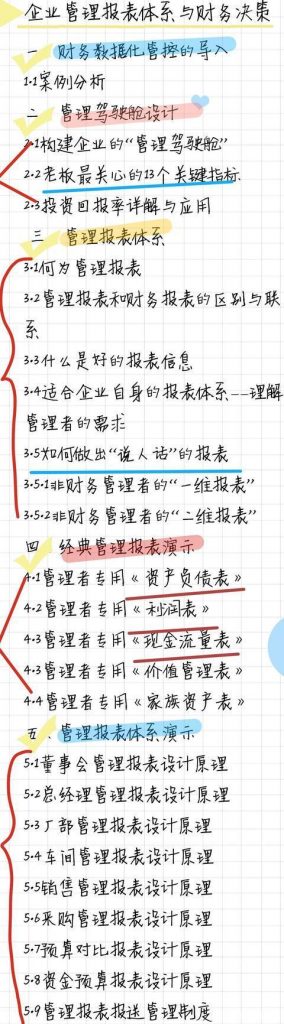 企业管理报表体系与财务决策
一 财务数据化管控的导入
1.1案例分析
二 管理驾驶舱设计
2.1构建企业的“管理驾驶舱”
2.2老板最关心的13个关键指标
2.3投资回报率详解与应用
三 管理报表体系
3.1何为管理报表
3.2管理报表和财务报表的区别与联
系
3.3什么是好的报表信息
3.4适合企业自身的报表体系--理解
管理者的需求
3.5如何做出“说人话”的报表
3.5.1非财务管理者的“一维报表”
3.5.2非财务管理者的“二维报表”
四 经典管理报表演示
4.1管理者专用《资产负债表》
4.2管理者专用《利润表》
4.3管理者专用《现金流量表》
4.3管理者专用《价值管理表》
4.4管理者专用《家族资产表》
五、管理报表体系演示
5.1董事会管理报表设计原理
5.2总经理管理报表设计原理
5.3厂部管理报表设计原理
5.4车间管理报表设计原理
5.5销售管理报表设计原理
5.6采购管理报表设计原理
5.7预算对比报表设计原理
5.8资金预算报表设计原理
5.9管理报表报送管理制度